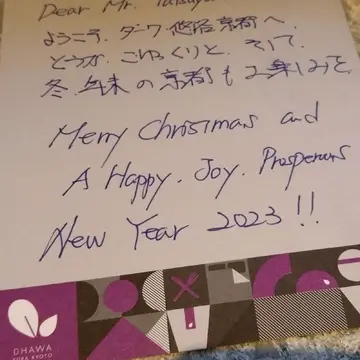 Dear Mr. Tatsuya
ようこそ、ダーワ・悠洛京都へ
どうぞ、ごゆっくりと、そして、
冬、年末の京都もお楽しみを
Merry Christmas and
A Happy. Joy. Prosperous
New Year 2023!!
DHAWA
YURA KYOTO